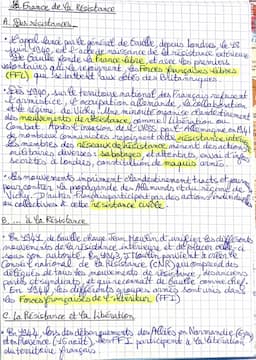 La France de la Résistance
A. Des résistances...
• L'appel lancé par le général de Gaulle, depuis Londres, le 18
juin 1940, est l'acte de naissance de la résistance extérieure
De Gaulle fonde la France libre, et avec les premiers
volontaires qui le rejoignent, les Forces françaises libres
(FFL) qui se battent aux côtés des Britanniques.
• Dès 1940, sur le territoire national des Français refusent
l'armistice, l'occupation allemande, la collaboration
et le régime de Vichy. Une minorité organise clandestinement
des mouvements de résistance, comme Libération ou
Combat. Après l'invasion de l'URSS par l'Allemagne en 1941
de nombreux communistes rejoignent cette résistance intér
Les membres des réseaux de résistance mènent des actions
militaires diverses : sabotages et attentats, envoi d'info
secrètes à Londres, constitution de maquis armés.
• Les mouvements impriment clandestinement tracts et journ
pour contrer la propagande des Allemands et du régime de
Vichy. D'autres Français participent par des actions individuelles
ou collectives à cette résistance civile.
B. ... à la Résistance
• En 1942, de Gaulle charge Jean Moulin d'unifier les différents
mouvements de la résistance intérieure et de les placer
sous son autorité. En 1943, J. Moulin parvient à créer le
Conseil national de la Résistance (CNR) qui comprend des
délégués de tous les mouvements de résistance, des anciens
partis et syndicats, et qui reconnaît de Gaulle comme chef.
• En 1944, les différents groupes armés sont unis dans
les Forces françaises de l'intérieur (FFI)
C. La Résistance et la Libération
• En 1944, lors des débarquements des Alliés en Normandie (6 juin)
et en Provence (15 août), les FFI participent à la libération
du territoire français.